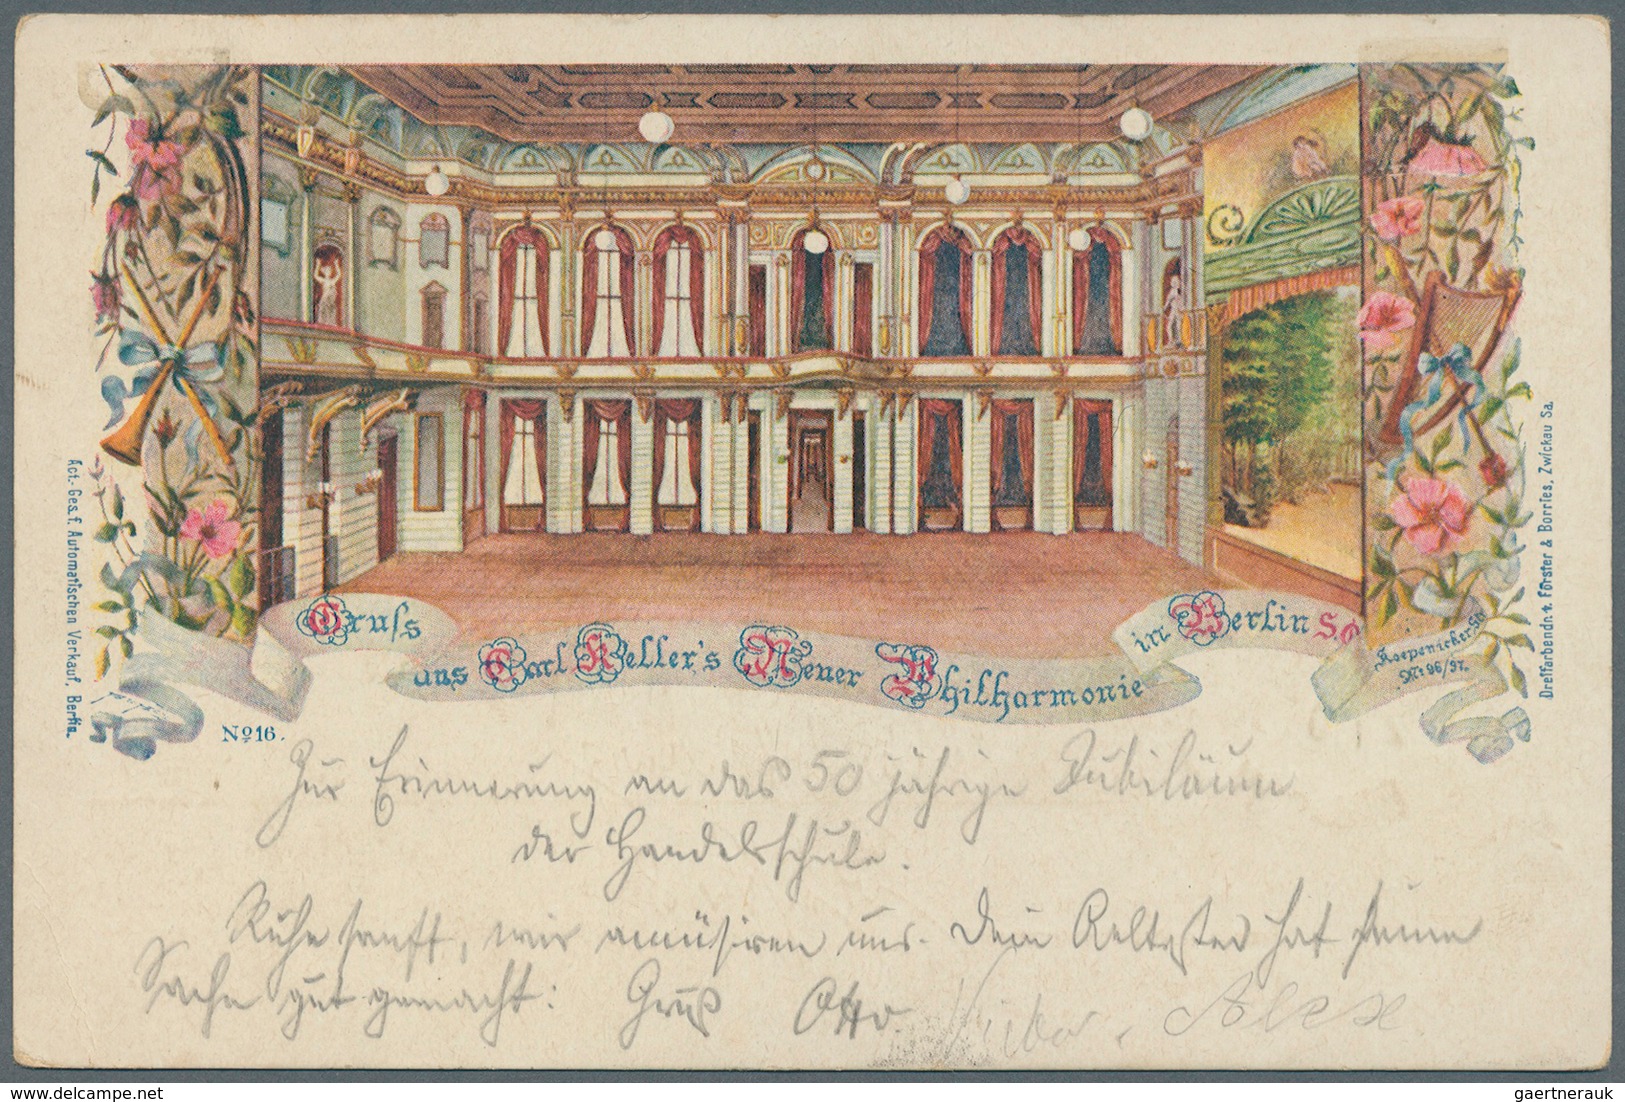 Gruſs
aus Carl Keller's Neuer Philharmonie
in Berlin S.O
Koepenicker St
No 96/97.
Act.-Ges. f. Automatischen Verkauf, Berlin.
Dreifarbendr. v. Förster & Borries, Zwickau Sa.
No 16.
Zur Erinnerung an das 50 jährige Jubiläum
der Handelsschule.
Ruhe sanft, wir amüsiren uns. Dein Aeltester hat seine
Sache gut gemacht: Gruß Otto Alex
gaertnerauk | delcampe.net